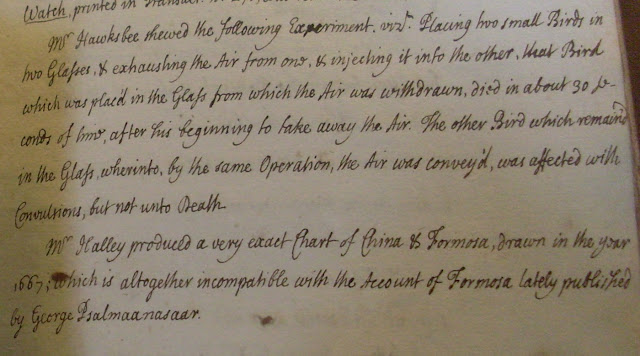 Watch, printed in Transact:
Mr. Hawksbee shewed the following Experiment. vizt. Placing two small Birds in
two Glasses, & exhausting the Air from one, & injecting it into the other, that Bird
which was plac'd in the Glass from which the Air was withdrawn, died in about 30 Se-
conds of time, after his beginning to take away the Air. The other Bird which remain'd
in the Glass, wherinto, by the same Operation, the Air was convey'd, was affected with
Convulsions, but not unto Death.
Mr. Halley produced a very exact Chart of China & Formosa, drawn in the year
1667; which is altogether incompatible with the Account of Formosa lately published
by George Psalmaanasaar.